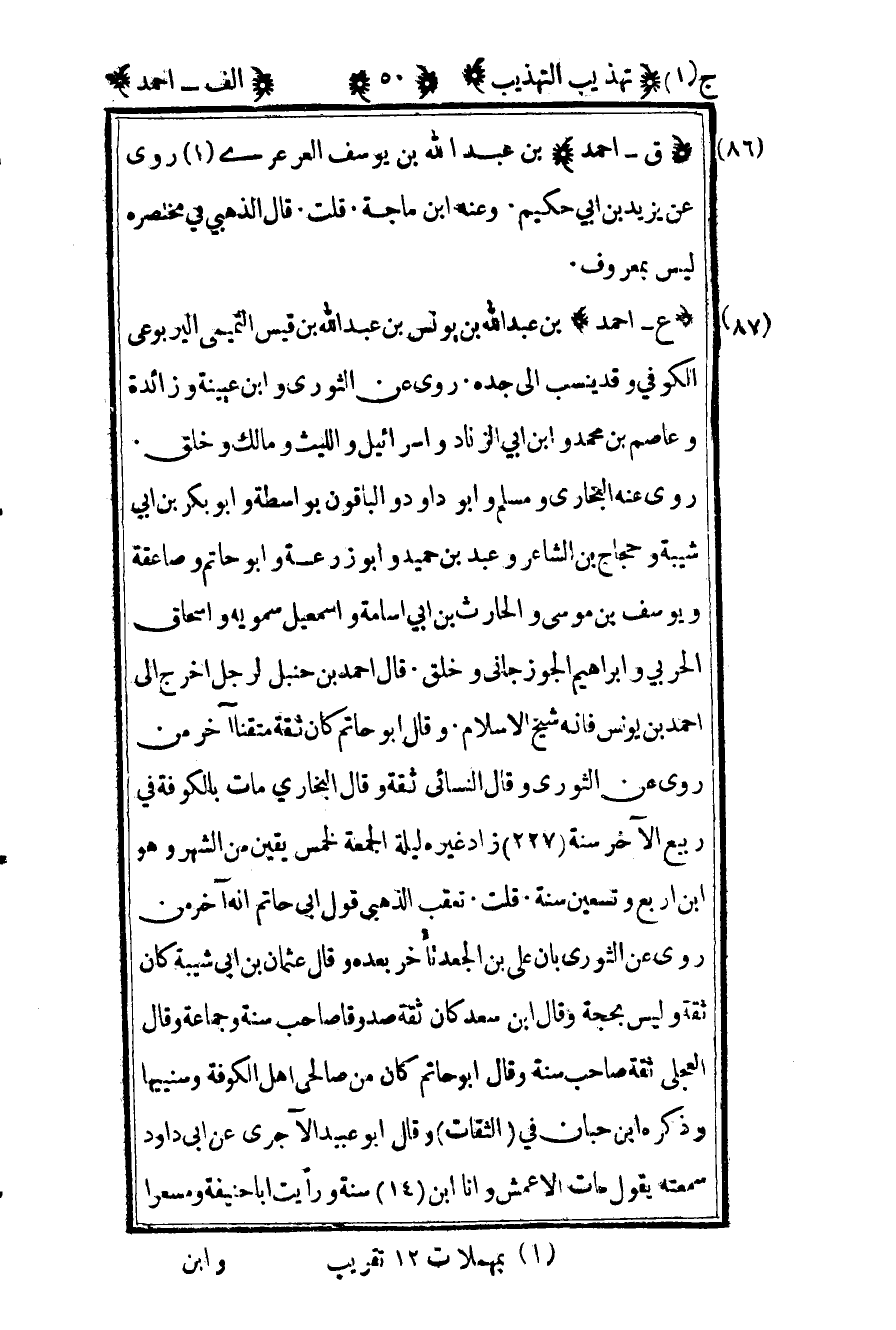 ج(١) ﴿ تهذيب التهذيب ﴾ ﴿ ٥٠ ﴾ ﴿ الف ـ احمد ﴾
(٨٦) ﴿ ق ـ احمد ﴾ بن عبد الله بن يوسف العرعرى (١) روى
عن يزيد بن ابي حكيم . وعنه ابن ماجة . قلت . قال الذهبي في مختصره
ليس بمعروف .
(٨٧) ﴿ ع ـ احمد ﴾ بن عبدالله بن يونس بن عبدالله بن قيس التميمى اليربوعى
الكوفي وقد ينسب الى جده . روى عن الثورى وابن عيينة وزائدة
وعاصم بن محمد وابن ابي الزناد واسرائيل والليث ومالك وخلق .
روى عنه البخارى ومسلم وابو داود والباقون بواسطة وابو بكر بن ابي
شيبة وحجاج بن الشاعر وعبد بن حميد وابو زرعة وابو حاتم وصاعقة
ويوسف بن موسى والحارث بن ابي اسامة واسمعيل سمويه واسحاق
الحربي وابراهيم الجوزجانى وخلق . قال احمد بن حنبل لرجل اخرج الى
احمد بن يونس فانه شيخ الاسلام . وقال ابو حاتم كان ثقة متقنا آخر من
روى عن الثورى وقال النسائى ثقة وقال البخاري مات بالكوفة في
ربيع الآخر سنة (٢٢٧) زاد غيره ليلة الجمعة لخمس بقين من الشهر وهو
ابن اربع وتسعين سنة . قلت . تعقب الذهبي قول ابي حاتم انه آخر من
روى عن الثورى بان على بن الجعد تأخر بعده وقال عثمان بن ابي شيبة كان
ثقة وليس بحجة وقال ابن سعد كان ثقة صدوقا صاحب سنة وجماعة وقال
العجلى ثقة صاحب سنة وقال ابو حاتم كان من صالحى اهل الكوفة وسنييها
وذكره ابن حبان في (الثقات) وقال ابو عبيد الآجرى عن ابى داود
سمعته يقول مات الاعمش وانا ابن (١٤) سنة ورأيت اباحنيفة ومسعرا
(١) بمهملات ١٢ تقريب وابن